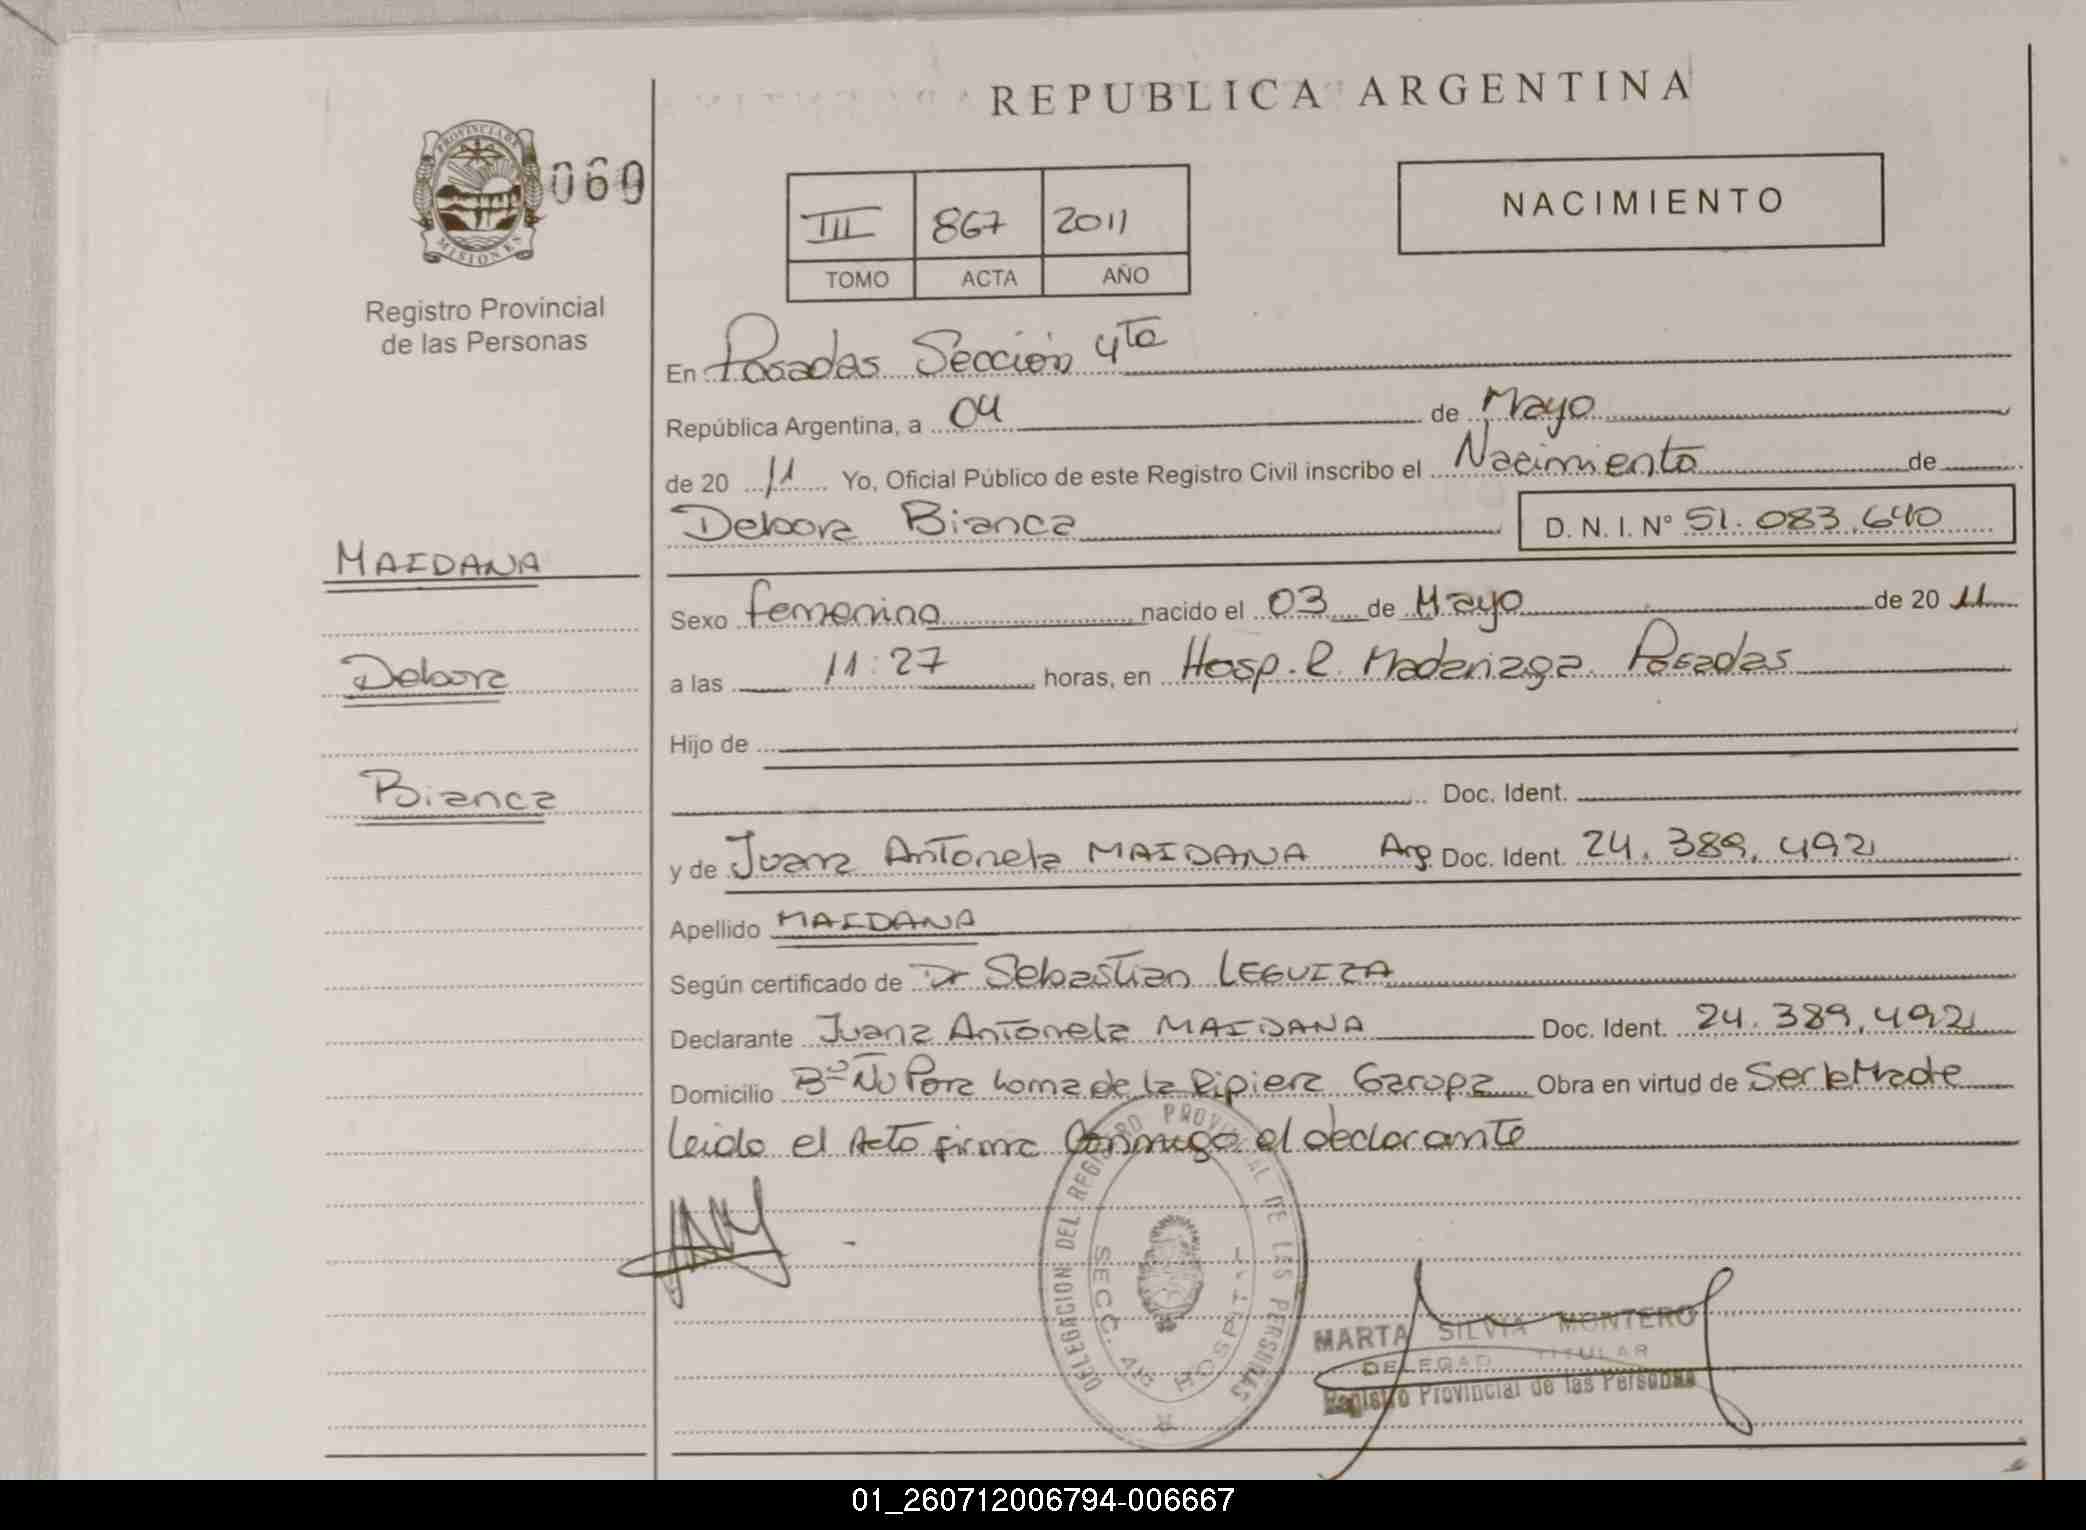 REPUBLICA ARGENTINA
PROVINCIA DE
MISIONES
069
Registro Provincial
de las Personas
III 867 2011
TOMO ACTA AÑO
NACIMIENTO
En Posadas Sección 4ta
República Argentina, a 04 de Mayo
de 20 11 Yo, Oficial Público de este Registro Civil inscribo el Nacimiento de
Debora Bianca D. N. I. N° 51.083.640
MAIDANA
Debora
Bianca
Sexo femenino nacido el 03 de Mayo de 20 11
a las 11:27 horas, en Hosp. R. Madariaga Posadas
Hijo de
Doc. Ident.
y de Juana Antonela MAIDANA Arg. Doc. Ident. 24.389.492
Apellido MAIDANA
Según certificado de Dr Sebastian LEGUIZA
Declarante Juana Antonela MAIDANA Doc. Ident. 24.389.492
Domicilio B° Ñu Pora Loma de la Ripiera Garupa Obra en virtud de Ser la Madre
Leido el Acto firma Conmigo el declarante
DELEGACION DEL REGISTRO PROVINCIAL DE LAS PERSONAS
SECC. 4ta HOSPITAL
MARTA SILVIA MONTERO
DELEGAD TITULAR
Registro Provincial de las Personas
01_260712006794-006667